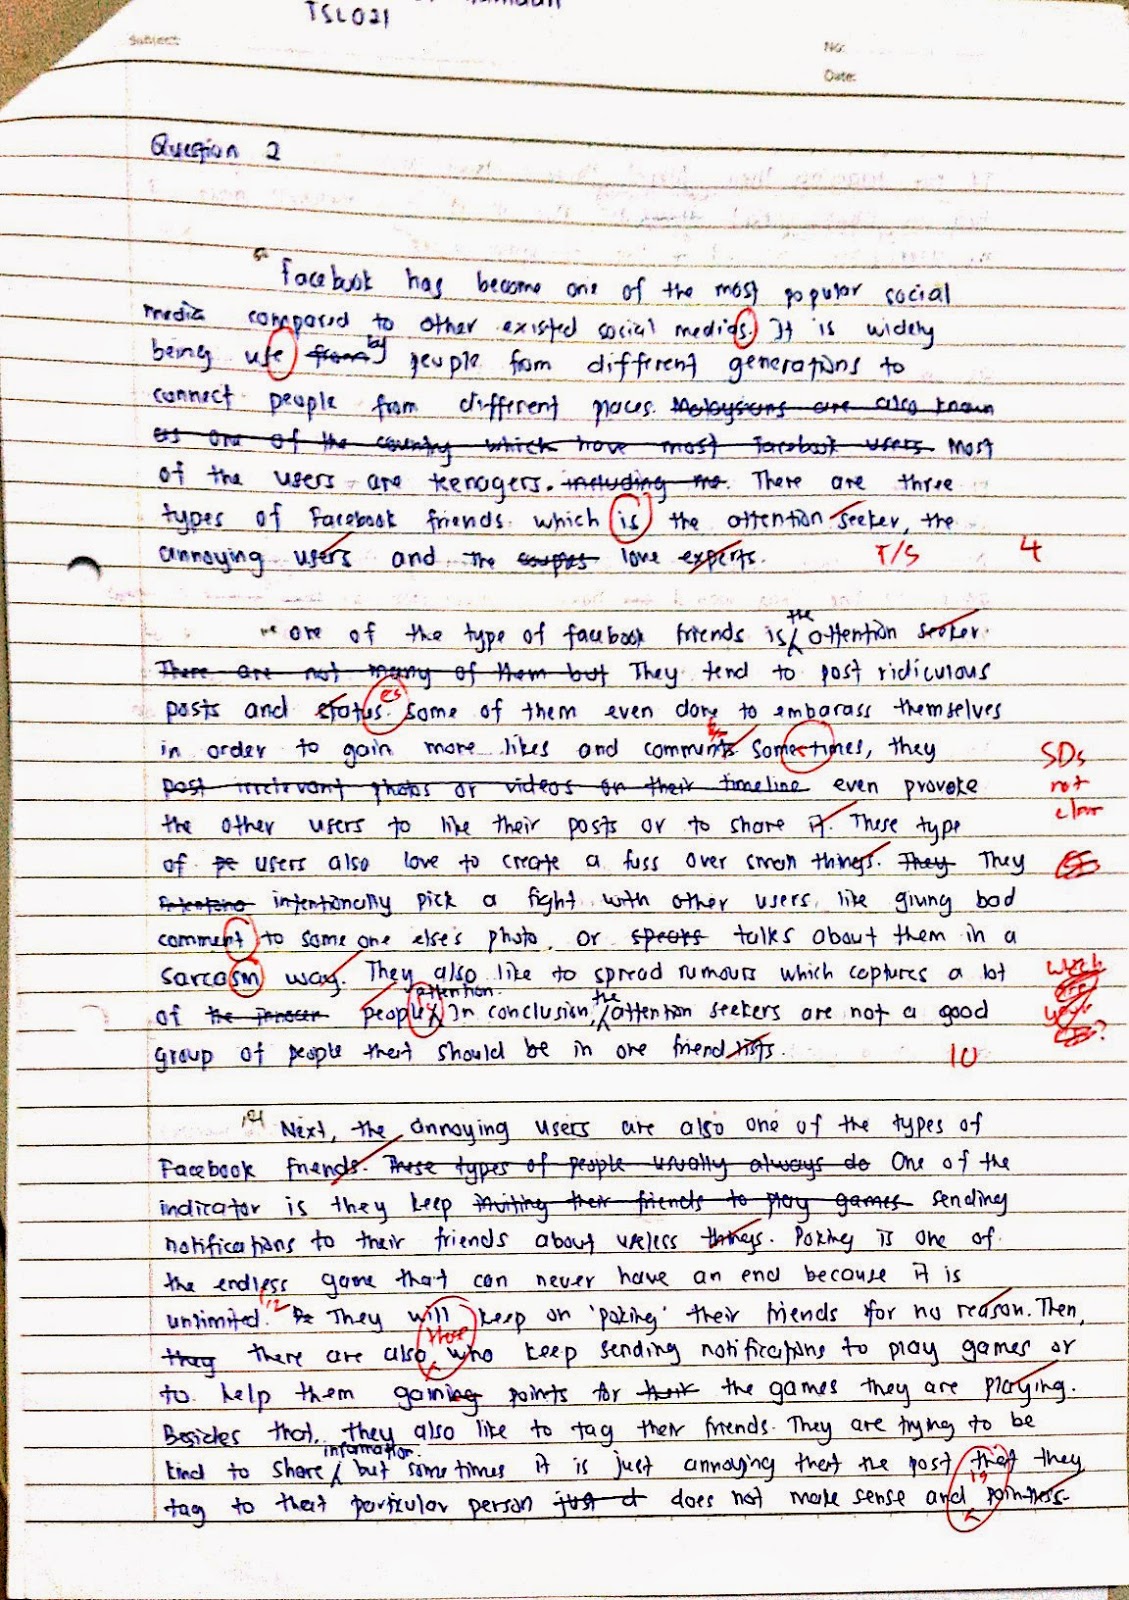 TSL021
Subject:
No:
Date:
Question 2
Facebook has become one of the most popular social
media compared to other existed social medias. It is widely
being use from by people from different generations to
connect people from different places. Malaysians are also known
as one of the country which have most Facebook users Most
of the users are teenagers. including me. There are three
types of Facebook friends which is the attention seeker, the
annoying users and the couples love experts.
T/S 4
One of the type of facebook friends is the attention seeker.
There are not many of them but They tend to post ridiculous
posts and status.es Some of them even dare to embarass themselves
in order to gain more likes and comments. Sometimes, they
SDs
post irrelevant photos or videos on their timeline even provoke
not
the other users to like their posts or to share it. These type
clear
of pe users also love to create a fuss over small things. They They
intentionally pick a fight with other users, like giving bad
comment to some one else's photo, or speaks talks about them in a
sarcasm way. They also like to spread rumours which captures a lot
of the innocer people attention. In conclusion, the attention seekers are not a good
group of people that should be in one friend lists.
10
Next, the annoying users are also one of the types of
Facebook friends. These types of people usually always do One of the
indicator is they keep inviting their friends to play games sending
notifications to their friends about useless things. Poking is one of
the endless game that can never have an end because it is
unlimited. They will keep on 'poking' their friends for no reason. Then,
they there are also who keep sending notifications to play games or
to help them gaining points for their the games they are playing.
Besides that, they also like to tag their friends. They are trying to be
kind to share information but sometimes it is just annoying that the post that they
tag to that particular person just d does not make sense and is pointless.